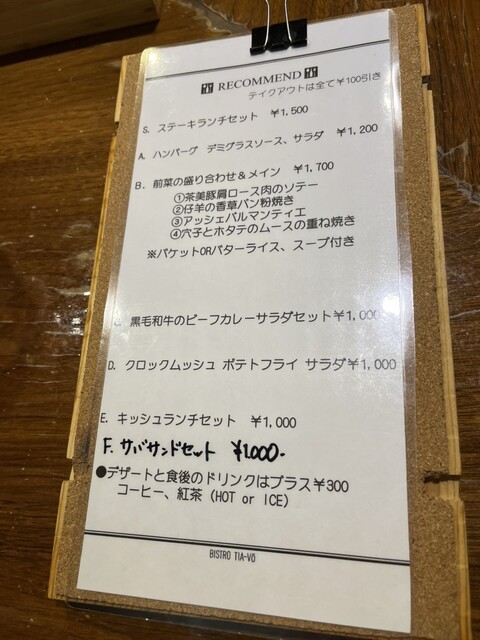 RECOMMEND
テイクアウトは全て¥100引き
S. ステーキランチセット ¥1,500
A. ハンバーグ デミグラスソース、サラダ ¥1,200
B. 前菜の盛り合わせ&メイン ¥1,700
①茶美豚肩ロース肉のソテー
②仔羊の香草パン粉焼き
③アッシェパルマンティエ
④穴子とホタテのムースの重ね焼き
※バケットORバターライス、スープ付き
C. 黒毛和牛のビーフカレーサラダセット¥1,000
D. クロックムッシュ ポテトフライ サラダ¥1,000
E. キッシュランチセット ¥1,000
F. サバサンドセット ¥1000-
●デザートと食後のドリンクはプラス¥300
コーヒー、紅茶（HOT or ICE）
BISTRO TIA-VÖ